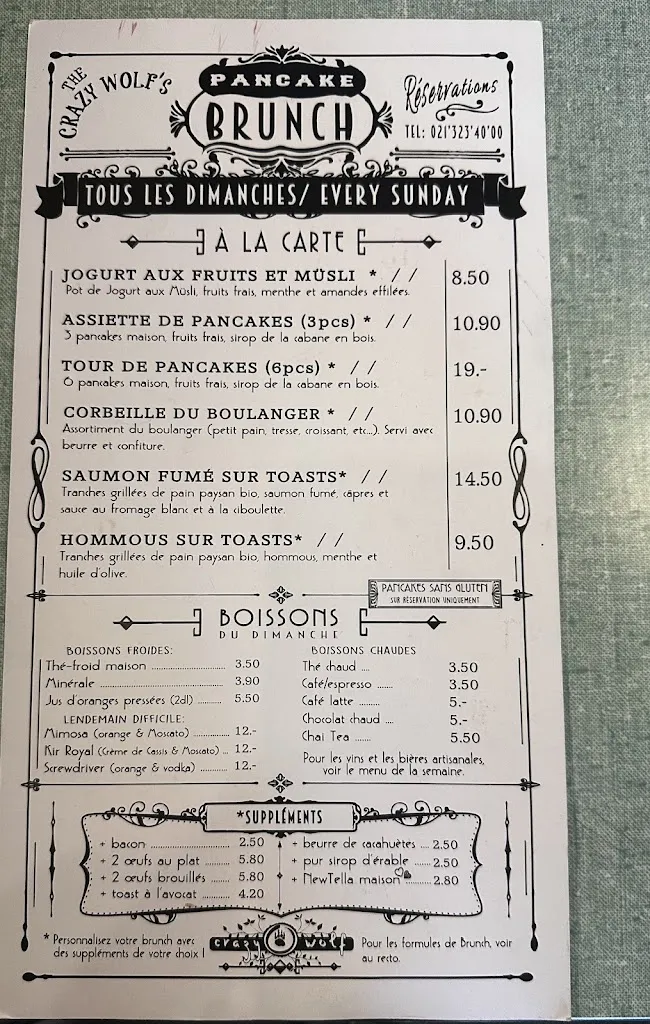 THE CRAZY WOLF'S
PANCAKE
BRUNCH
Réservations
TEL: 021'323'40'00
TOUS LES DIMANCHES/ EVERY SUNDAY
À LA CARTE
JOGURT AUX FRUITS ET MÜSLI * // 8.50
Pot de Jogurt aux Müsli, fruits frais, menthe et amandes effilées.
ASSIETTE DE PANCAKES (3pcs) * // 10.90
3 pancakes maison, fruits frais, sirop de la cabane en bois.
TOUR DE PANCAKES (6pcs) * // 19.-
6 pancakes maison, fruits frais, sirop de la cabane en bois.
CORBEILLE DU BOULANGER * // 10.90
Assortiment du boulanger (petit pain, tresse, croissant, etc...). Servi avec
beurre et confiture.
SAUMON FUMÉ SUR TOASTS* // 14.50
Tranches grillées de pain paysan bio, saumon fumé, câpres et
sauce au fromage blanc et à la ciboulette.
HOMMOUS SUR TOASTS* // 9.50
Tranches grillées de pain paysan bio, hommous, menthe et
huile d'olive.
PANCAKES SANS GLUTEN
SUR RÉSERVATION UNIQUEMENT
BOISSONS
DU DIMANCHE
BOISSONS FROIDES:
Thé-froid maison .................... 3.50
Minérale .................... 3.90
Jus d'oranges pressées (2dl) ......... 5.50
LENDEMAIN DIFFICILE:
Mimosa (orange & Moscato) ............. 12.-
Kir Royal (Crème de Cassis & Moscato) .. 12.-
Screwdriver (orange & vodka) .......... 12.-
BOISSONS CHAUDES
Thé chaud .... 3.50
Café/espresso ....... 3.50
Café latte ......... 5.-
Chocolat chaud .... 5.-
Chai Tea ....... 5.50
Pour les vins et les bières artisanales,
voir le menu de la semaine.
*SUPPLÉMENTS
+ bacon .................... 2.50
+ 2 œufs au plat ......... 5.80
+ 2 œufs brouillés ....... 5.80
+ toast à l'avocat ....... 4.20
+ beurre de cacahuètes .... 2.50
+ pur sirop d'érable ...... 2.50
+ NewTella maison ......... 2.80
* Personnalisez votre brunch avec
des suppléments de votre choix !
crazy wolf
Pour les formules de Brunch, voir
au recto.